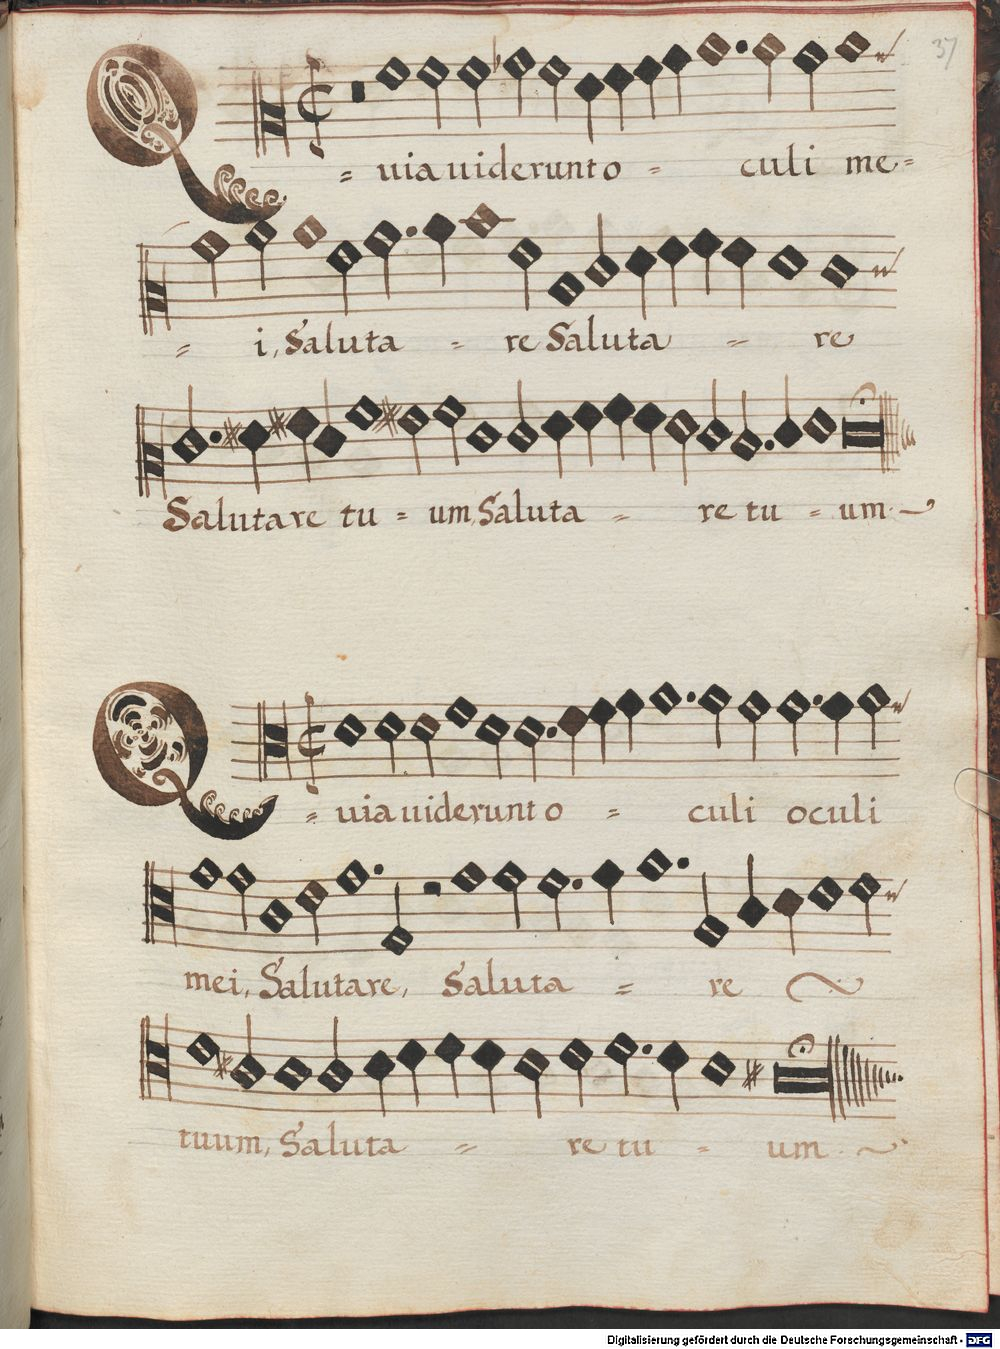 37
Q = uia uiderunt o = culi me=
= i, Saluta = re Saluta = re
Salutare tu = um, Saluta = re tu = um.
Q = uia uiderunt o = culi oculi
mei, Salutare, Saluta = re
tuum, Saluta = re tu = um.
Digitalisierung gefördert durch die Deutsche Forschungsgemeinschaft - DFG